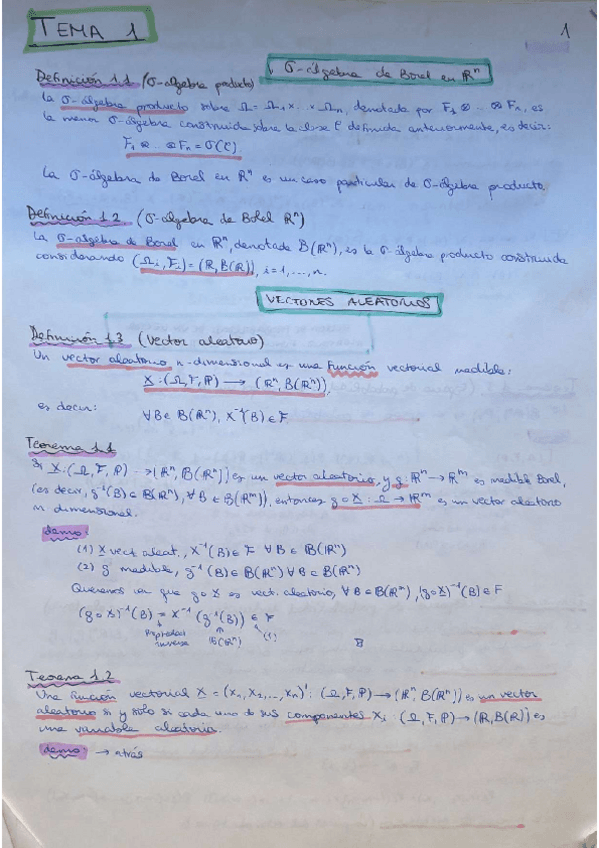 TEMA 1
1
σ-álgebra de Borel en ℝⁿ
Definición 1.1 (σ-álgebra producto)
La σ-álgebra producto sobre Ω = Ω₁ × ... × Ωₙ, denotada por F₁ ⊗ ... ⊗ Fₙ, es
la menor σ-álgebra construida sobre la clase C definida anteriormente, es decir:
F₁ ⊗ ... ⊗ Fₙ = σ(C).
La σ-álgebra de Borel en ℝⁿ es un caso particular de σ-álgebra producto.
Definición 1.2 (σ-álgebra de Borel ℝⁿ)
La σ-álgebra de Borel en ℝⁿ, denotada B(ℝⁿ), es la σ-álgebra producto construida
considerando (Ωᵢ, Fᵢ) = (ℝ, B(ℝ)), i = 1, ..., n.
VECTORES ALEATORIOS
Definición 1.3 (vector aleatorio)
Un vector aleatorio n-dimensional es una función vectorial medible:
X : (Ω, F, P) → (ℝⁿ, B(ℝⁿ)),
es decir: ∀B ∈ B(ℝⁿ), X⁻¹(B) ∈ F
Teorema 1.1
Si X : (Ω, F, P) → (ℝⁿ, B(ℝⁿ)) es un vector aleatorio, y g : ℝⁿ → ℝᵐ es medible Borel,
(es decir, g⁻¹(B) ∈ B(ℝⁿ), ∀B ∈ B(ℝᵐ)), entonces g∘X : Ω → ℝᵐ es un vector aleatorio
m dimensional.
demo:
(1) X vect. aleat., X⁻¹(B) ∈ F ∀B ∈ B(ℝⁿ)
(2) g medible, g⁻¹(B) ∈ B(ℝⁿ) ∀B ∈ B(ℝᵐ)
Queremos ver que g∘X es vect. aleatorio, ∀B ∈ B(ℝᵐ), (g∘X)⁻¹(B) ∈ F
(g∘X)⁻¹(B) = X⁻¹(g⁻¹(B)) ∈ F
Propiedad inversa B(ℝⁿ) (1)
Teorema 1.2
Una función vectorial X = (x₁, x₂, ..., xₙ)' : (Ω, F, P) → (ℝⁿ, B(ℝⁿ)) es un vector
aleatorio si y sólo si cada uno de sus componentes Xᵢ : (Ω, F, P) → (ℝ, B(ℝ)) es
una variable aleatoria.
demo: → atrás